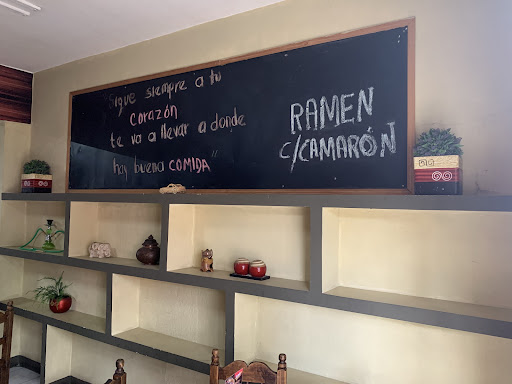 "Sigue siempre a tu
corazón
te va a llevar a donde
hay buena COMIDA"
RAMEN
C/CAMARÓN